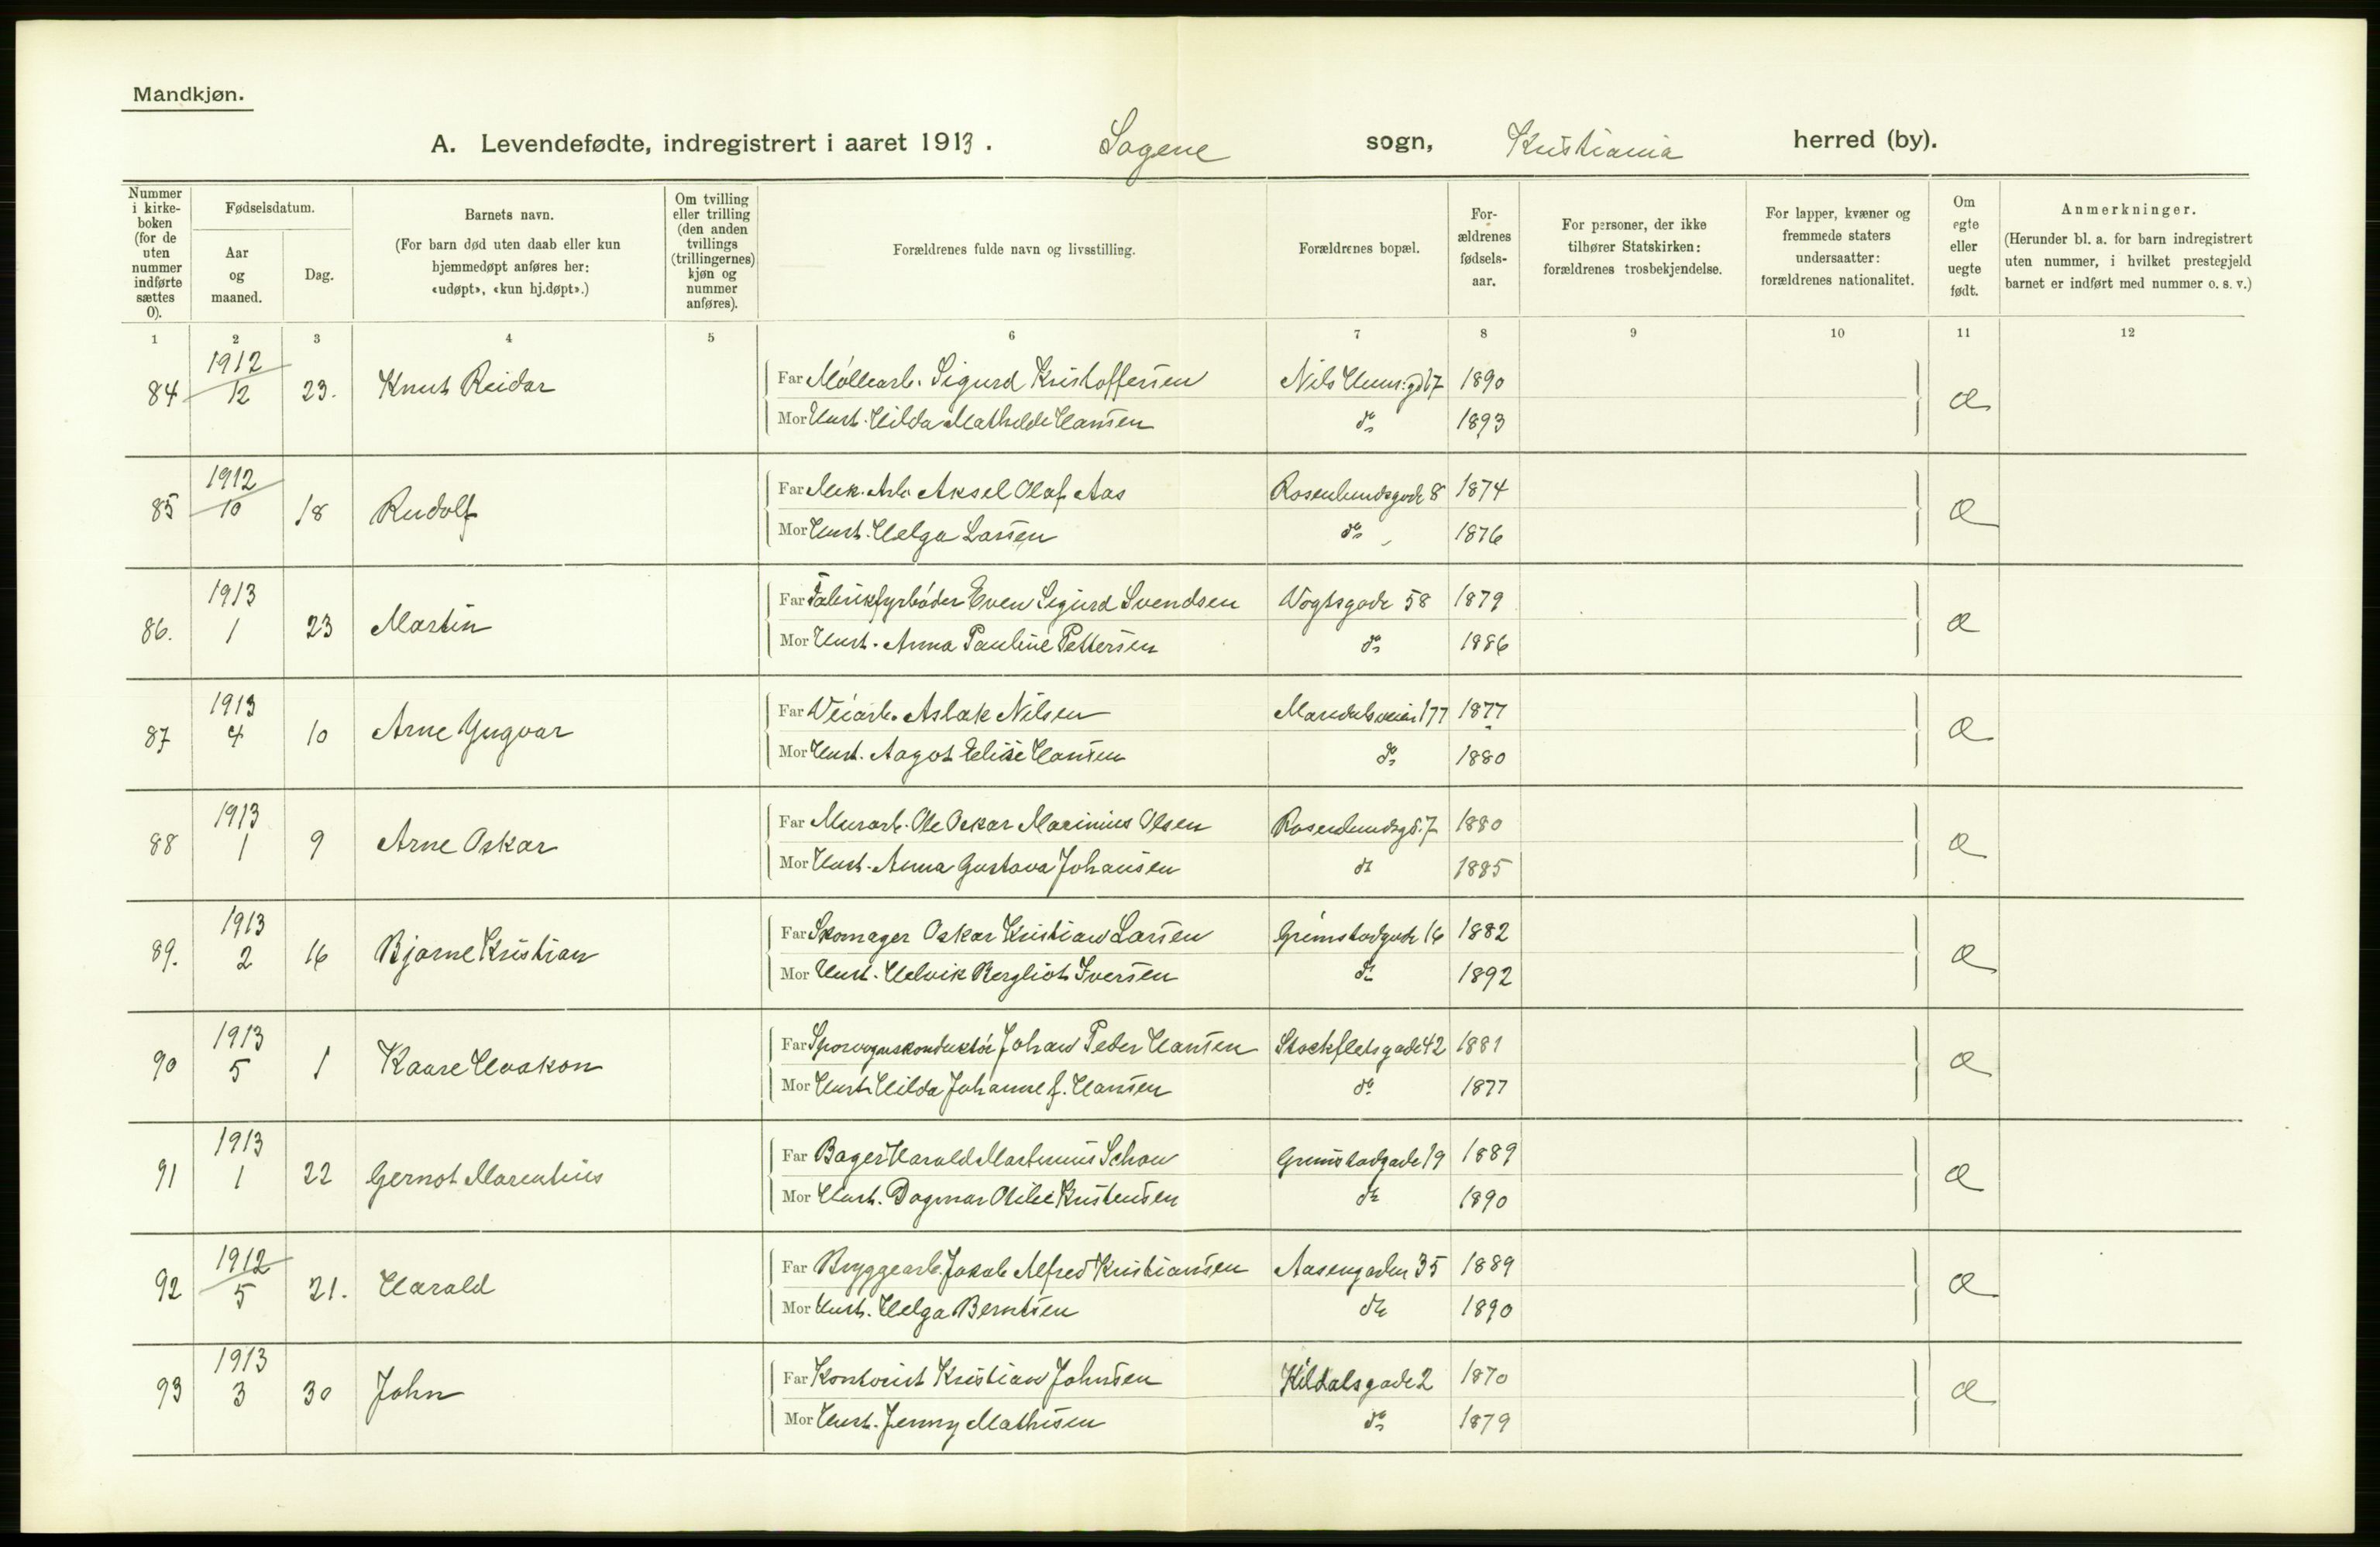 Mandkjøn.
A. Levendefødte, indregistrert i aaret 1913. Sagene sogn, Kristiania herred (by).
Nummer i kirkeboken (for de uten nummer indførte sættes 0).
Fødselsdatum.
Aar og maaned.
Dag.
Barnets navn.
(For barn død uten daab eller kun hjemmedøpt anføres her: «udøpt», «kun hj.døpt».)
Om tvilling eller trilling (den anden tvillings (trillingernes) kjøn og nummer anføres).
Forældrenes fulde navn og livsstilling.
Forældrenes bopæl.
Forældrenes fødselsaar.
For personer, der ikke tilhører Statskirken: forældrenes trosbekjendelse.
For lapper, kvæner og fremmede staters undersaatter: forældrenes nationalitet.
Om egte eller uegte født.
Anmerkninger.
(Herunder bl. a. for barn indregistrert uten nummer, i hvilket prestegjeld barnet er indført med nummer o. s. v.)
1 2 3 4 5 6 7 8 9 10 11 12
84 1912 12 23. Knut Reidar Far Møllearb. Sigurd Kristoffersen 1890
Mor Hust. Hilda Mathilde Hansen do 1893
85 1912 10 18 Rudolf Far Mek. Arb. Aksel Olaf Aas Rosenlundsgade 8 1874
Mor Hust. Helga Larsen do 1876
86. 1913 1 23 Martin Far Fabrikfyrbøder Even Sigurd Svendsen Vogtsgade 58 1879
Mor Hust. Anna Pauline Pettersen do 1886
87 1913 4 10 Arne Yngvar Far Veiarb. Aslak Nilsen Maridalsveien 177 1877
Mor Hust. Aagot Elise Hansen do 1880
88 1913 1 9 Arne Oskar Far Murarb. Ole Oskar Marinius Olsen Rosenlundsgd. 7 1880
Mor Hust. Anna Gustava Johansen do 1885
89. 1913 2 16 Bjarne Kristian Far Skomager Oskar Kristian Larsen Grimstadgade 16 1882
Mor Hust. Helvik Bergliot Iversen do 1892
90 1913 5 1 Kaare Haakon Far Sporvognskonduktör Johan Peder Hansen Stockfletsgade 42 1881
Mor Hust. Hilda Johanne f. Hansen do 1877
91 1913 1 22 Gernot Marentius Far Bager Harald Martinius Schou Grimstadgade 19 1889
Mor Hust. Dagmar Otilie Kristensen do 1890
92 1912 5 21. Harald Far Bryggearb. Jakob Alfred Kristiansen Aasengaden 35 1889
Mor Hust. Helga Berntsen do 1890
93 1913 3 30 John Far Kontorist Kristian Johnsen Kildalsgade 2 1870
Mor Hust. Jenny Mathisen do 1879